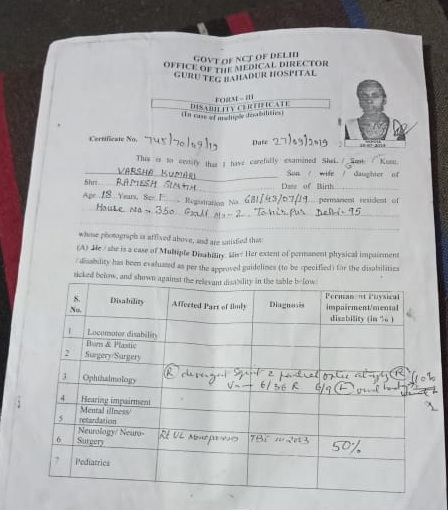 GOVT OF NCT OF DELHI
OFFICE OF THE MEDICAL DIRECTOR
GURU TEG BAHADUR HOSPITAL
FORM - III
DISABILITY CERTIFICATE
(In case of multiple disabilities)
Certificate No. 745/70/09/19 Date 27/09/2019
This is to certify that I have carefully examined Shri. / Smt. / Kum.
VARSHA KUMARI Son / wife / daughter of
Shri RAMESH Date of Birth
Age 18 Years, Sex F Registration No. 681/43/07/19 permanent resident of
House No - 350 Gali No - 2 Tahirpur Delhi - 95
whose photograph is affixed above, and are satisfied that:
(A) He / she is a case of Multiple Disability. His / Her extent of permanent physical impairment
/ disability has been evaluated as per the approved guidelines (to be specified) for the disabilities
ticked below, and shown against the relevant disability in the table below:
S. No. Disability Affected Part of Body Diagnosis Permanent Physical impairment/mental disability (in %)
1 Locomotor disability
2 Burn & Plastic Surgery/Surgery
3 Ophthalmology (R) divergent Squint partial optic atrophy (R)
Vn - 6/36 R 6/9 (L)
4 Hearing impairment
5 Mental illness/ retardation
6 Neurology/ Neuro-Surgery Rt UL Monoparesis 50%
7 Pediatrics